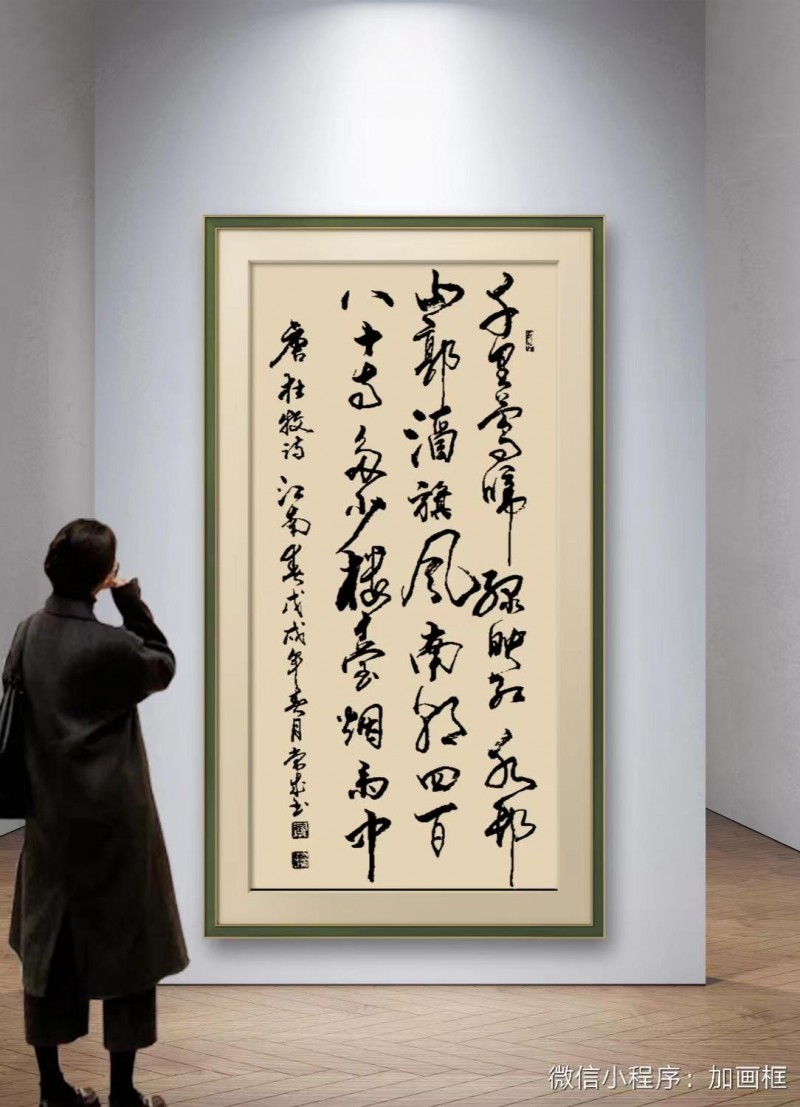 千里莺啼绿映红水邨
山郭酒旗风南朝四百
八十寺多少楼臺烟雨中
唐杜牧诗江南春戊戌年春月常成书
微信小程序：加画框